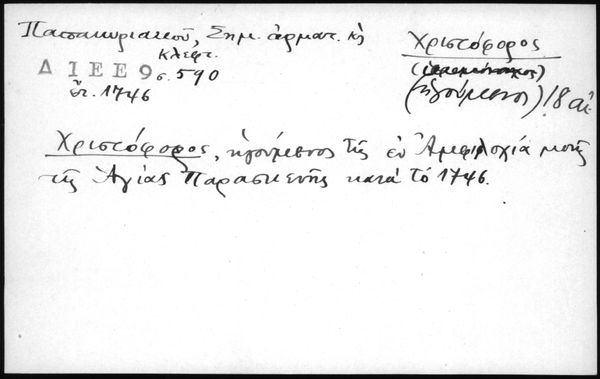 Παπακυριακοῦ, Σημ. ἁρματ. κὴ
κλεφτ.
ΔΙΕΕ 9 σ. 590
ἔτ. 1746
Χριστόφορος
(ἱερομόναχος)
(ἡγούμενος) 18 αἰ.
Χριστόφορος, ἡγούμενος τῆς ἐν Ἀμφιλοχίᾳ μονῆς
τῆς Ἁγίας Παρασκευῆς κατά τό 1746.